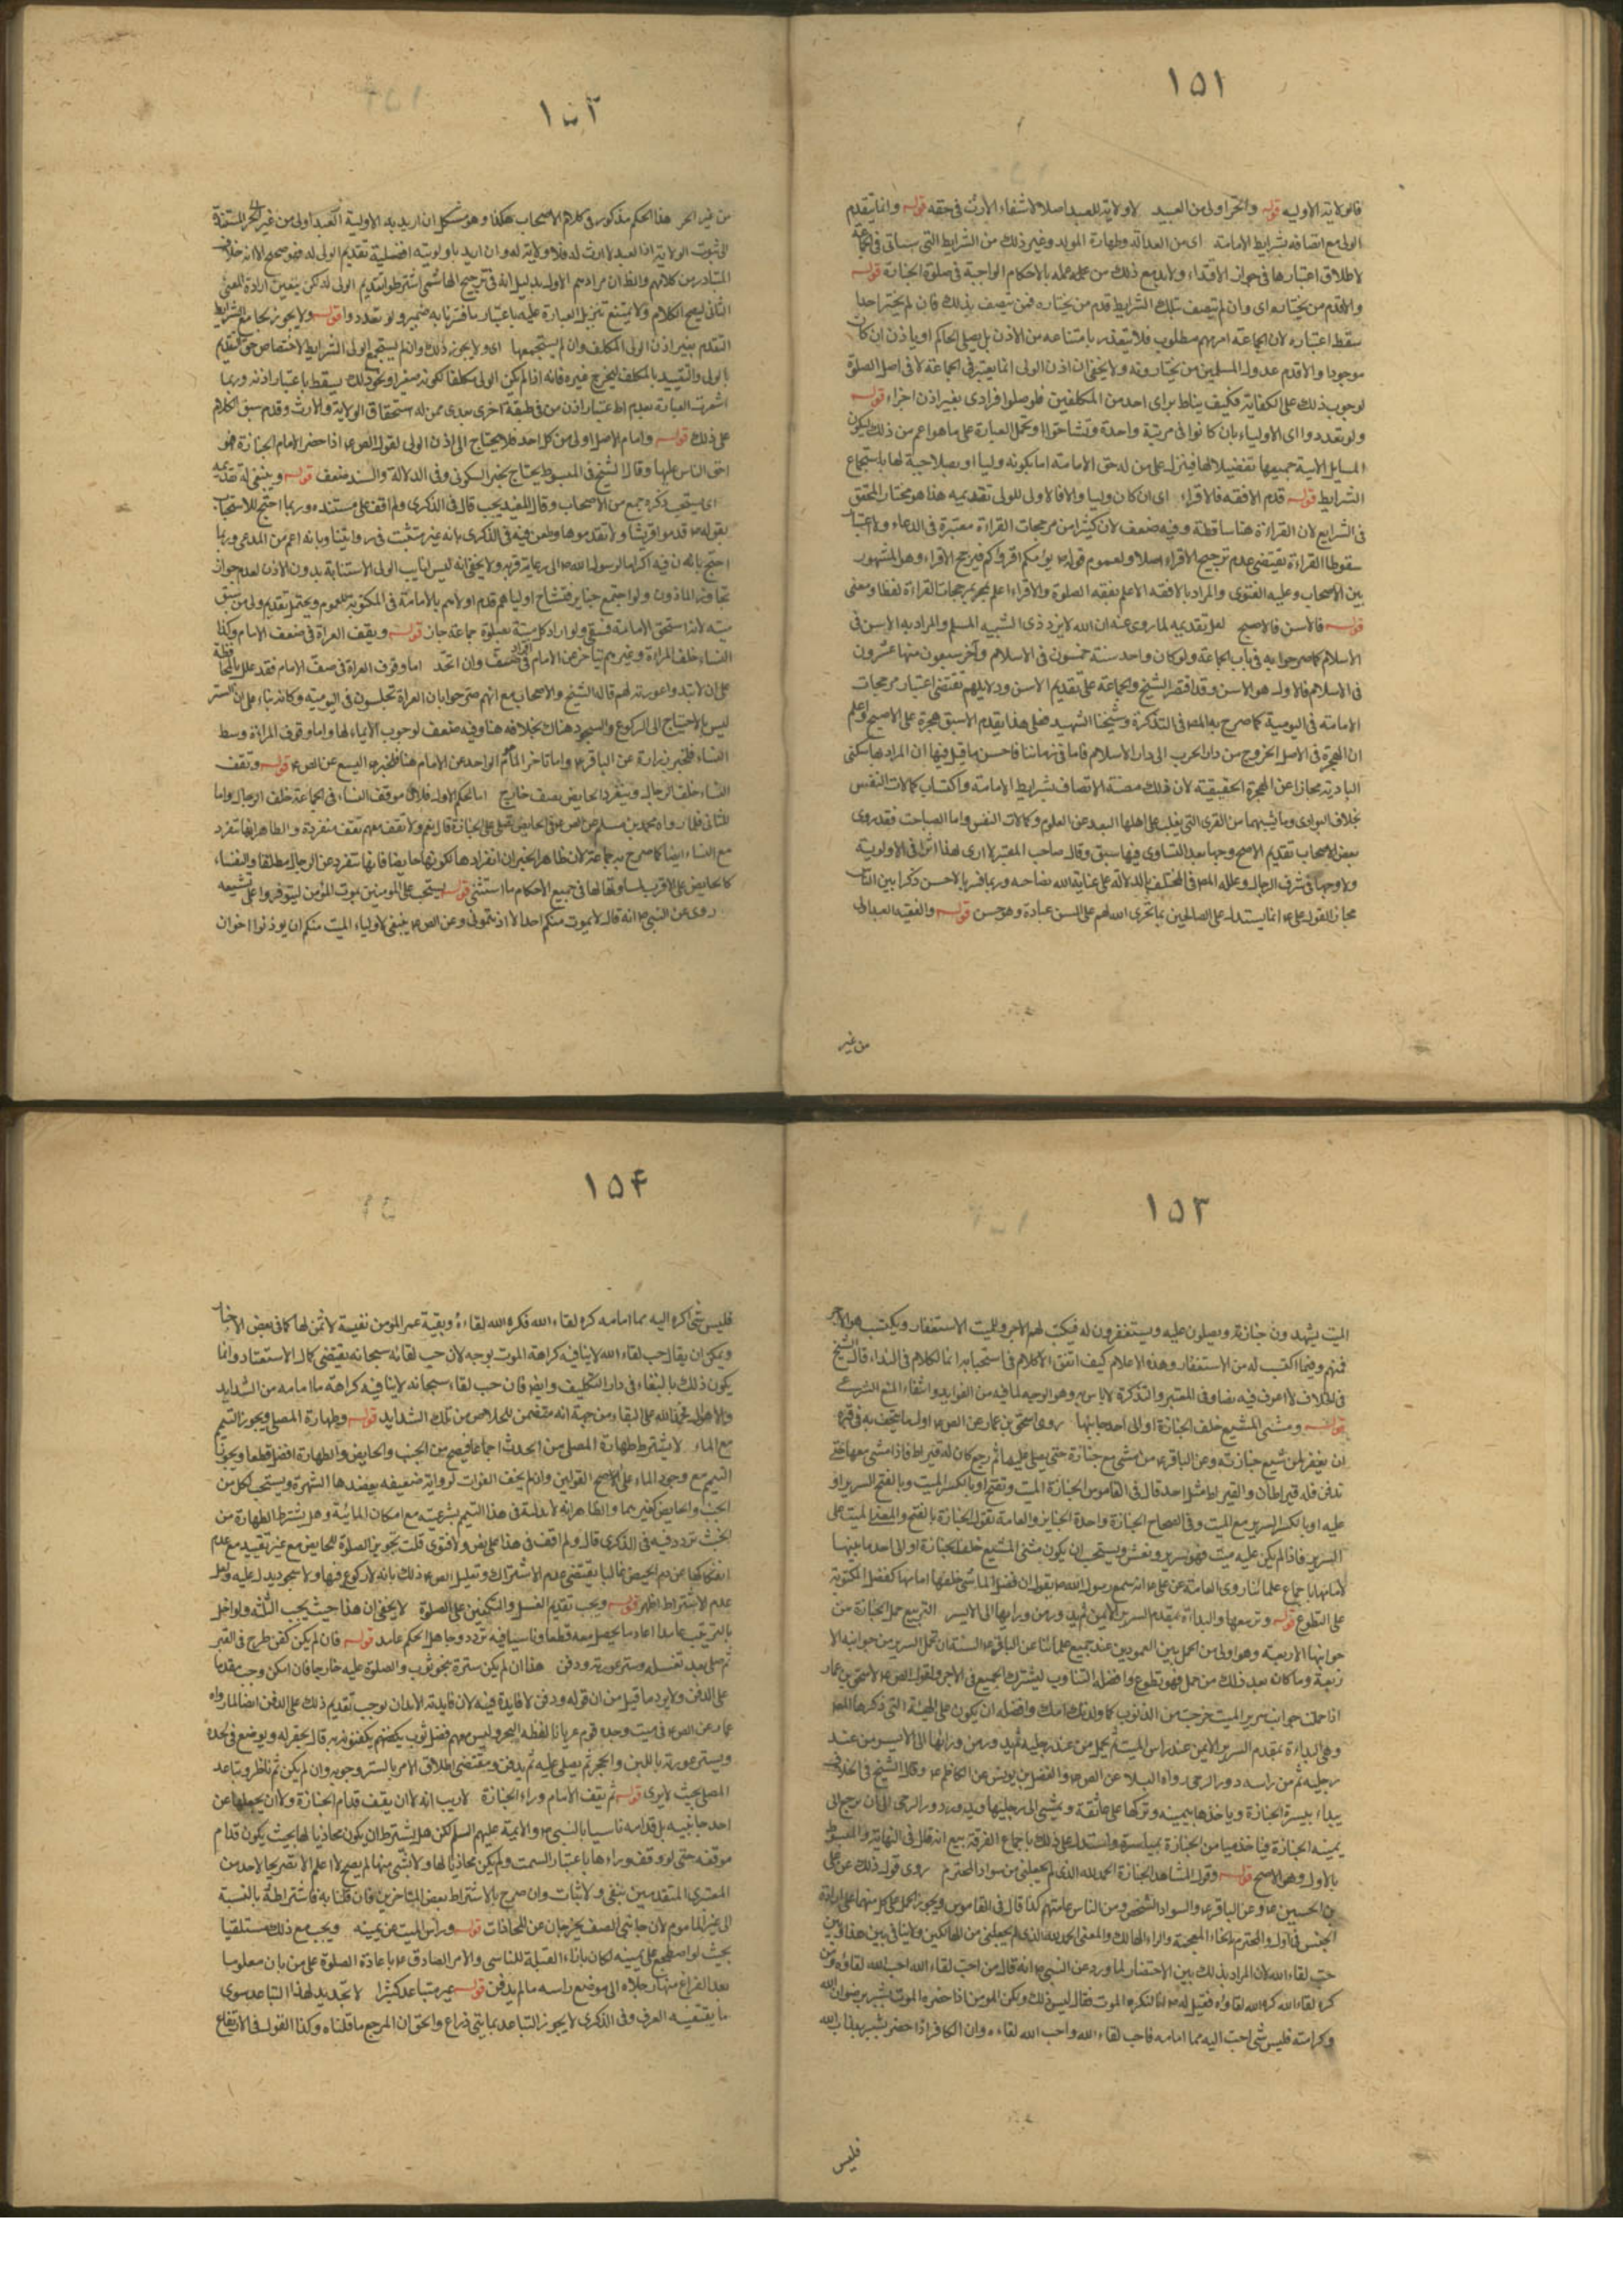 ١٥١
فالولاية الاولية قوله والحر اولى من العبيد لا ولاية للعبد اصلا لانتفاء الارث في حقه قوله وانما يتقدم
الولى مع اتصافه بشرايط الامامة اى من العدالة وطهارة المولد وغير ذلك من الشرايط التى ستاتى في الجماعة
لاطلاق اعتبارها في جواز الاقتداء ولا بد مع ذلك من علمه بالاحكام الواجبة في صلوة الجنازة قوله
والا قدم من يختاره اى وان لم يتصف بتلك الشرايط قدم من يختاره ممن يتصف بذلك فان لم يختر احدا
سقط اعتباره لان الجماعة امر مهم مطلوب فلا يتعذر بامتناعه من الاذن بل يصلى الحاكم او ياذن ان كان
موجودا والا قدم عدول المسلمين من يختارونه ولا يخفى ان اذن الولى انما يعتبر في الجماعة لا في اصل الصلوة
لوجوب ذلك على الكفاية فكيف يناط براى احد من المكلفين فلو صلوا فرادى بغير اذن اجزاء قوله
ولو تعددوا اى الاولياء بان كانوا في مرتبة واحدة وتشاحوا وتحمل العبارة على ما هو اعم من ذلك ليكون
المسايل الآتية جميعها تفصيلا لها فينزل على من له حق الامامة اما بكونه وليا او بصلاحية لها باستجماع
الشرايط قوله قدم الافقه فالاقراء اى ان كان وليا والا فالاولى للولى تقديمه هذا هو مختار المحقق
في الشرايع لان القراءة هنا ساقطة وفيه ضعف لان كثيرا من مرجحات القراءة معتبرة في الدعاء ولاعتبار
سقوط القراءة يقتضى عدم ترجيح الاقراء اصلا ولعموم قوله ص يؤمكم اقرؤكم فيرجح الاقراء وهو المشهور
بين الاصحاب وعليه الفتوى والمراد بالافقه الاعلم بفقه الصلوة والاقراء اعلم بمرجحات القراءة لفظا ومعنى
قوله فالاسن فالاصبح لعل تقديمه لما روى عنه ان الله لا يرد ذى الشيبة المسلم والمراد به الاسن في
الاسلام كما صرحوا به في باب الجماعة ولو كان واحد سنة خمسون في الاسلام وآخر سبعون منها عشرون
في الاسلام فالاول هو الاسن وقد اقتصر الشيخ والجماعة على تقديم الاسن ودلايلهم تقتضى اعتبار مرجحات
الامامة في اليومية كما صرح به المص في التذكرة وشيخنا الشهيد فعلى هذا يقدم الاسبق هجرة على الاصبح واعلم
ان الهجرة في الاصل الخروج من دار الحرب الى دار الاسلام فاما في زماننا فاحسن ما قيل فيها ان المراد بها سكنى
البلاد تجازا عن الهجرة الحقيقية لان ذلك مظنة الاتصاف بشرايط الامامة واكتساب كمالات النفس
بخلاف البوادى وما يشبهها من القرى التى يغلب على اهلها البعد عن العلوم وكمالات النفس واما الصباحة فقد روى
بعض الاصحاب تقديم الاصبح وجها بعد التساوى فيما سبق وقال صاحب المعتبر لا ارى لهذا اثرا في الاولوية
ولا وجها في شرف الرجال وعلله المص في المختلف بالدلالة على عناية الله بصاحبه وربما فسر بالاحسن ذكرا بين الناس
مجازا لقول على ع انما يستدل على الصالحين بما يجرى الله لهم على السن عباده وهو حسن قوله والفقيه العبد اولى
من غير
١٥٢
من غير الحر هذا الحكم مذكور في كلام الاصحاب هكذا وهو مشكل ان اريد به الاولية اذ العبد اولى من غير الحر المستندة
الى ثبوت الولاية اذ العبد لا ارث له فلا ولاية له وان اريد باولويته افضلية تقديم الولى له فهو صحيح الا انه خلاف
المتبادر من كلامهم والظ ان مرادهم الاول بدليل انه في ترجيح الهاشمى اشترطوا تقديم الولى له لكن يتعين ارادة المعنى
الثانى ليصح الكلام ولا يمتنع تنزيل العبارة عليه باعتبار ما قررنا به ضمير ولو تعددوا قوله ولا يجوز لجامع الشرايط
التقدم بغير اذن الولى المكلف وان لم يستجمعها اى ولا يجوز ذلك وان لم يستجمع الولى الشرايط لاختصاص حق التقديم
بالولى والتقييد بالمكلف ليخرج غيره فانه اذا لم يكن الولى مكلفا لكونه صغيرا ونحو ذلك يسقط باعتبار اذنه وربما
اشعرت العبارة بعدم اعتبار اذن من في طبقة اخرى بعدى ممن له استحقاق الولاية والارث وقدم سبق الكلام
على ذلك قوله وامام الاصل اولى من كل احد فلا يحتاج الى اذن الولى لقول الص ع اذا حضر الامام الجنازة فهو
احق الناس عليها وقال الشيخ في المبسوط يحتاج بخبر السكونى وفى الدلالة والسند ضعف قوله وينبغى له تقديمه
اى يستحب ذكره جمع من الاصحاب وقال المفيد يجب قال في الذكرى ولم اقف على مستنده وربما احتج للاستحباب
بقوله ص قدموا قريشا ولا تقدموها وطعن فيه في الذكرى بانه غير مثبت في رواياتنا وبانه اعم من المدعى وربما
احتج بان فيه اكراما لرسول الله ص الى رعاية قربه ولا يخفى انه ليس لنايب الولى الاستنابة بدون الاذن لعدم جواز
تجاوز الماذون ولو اجتمع جنايز فتشاح اولياهم قدم اولاهم بالامامة في المكتوبة للعموم ويحتمل تقديم ولى من سبق
ميته لانه استحق الامامة فيبقى ولو اراد كل ميتة بصلوة جماعة جاز قوله ويقف العراة في صف الامام وكذا
النساء خلف المراة وغيرهم يتاخر عن الامام في صف وان اتحد اما وقوف العراة في صف الامام فقد علل بالمحافظة
على ان لا تبدوا عورته لهم قاله الشيخ والاصحاب مع انهم صرحوا بان العراة يجلسون في اليومية وكانه بناء على ان الستر
ليس بالاحتياج الى الركوع والسجود هناك بخلافه هنا وفيه ضعف لوجوب الايماء لها واما وقوف المراة وسط
النساء فلخبر زرارة عن الباقر ع واما تاخر الماموم الواحد عن الامام هنا فلخبر اليسع عن الص ع قوله وتقف
النساء خلف الرجال وتنفرد الحايض بصف خارج اما الحكم الاول فلان موقف النساء في الجماعة خلف الرجال واما
الثانى فلما رواه محمد بن مسلم عن الص عن الحايض تصلى على الجنازة قال نعم ولا تقف معهم تقف منفردة والظاهر انها تنفرد
مع النساء ايضا كما صرح به جماعة لان ظاهر الخبر ان انفرادها لكونها حايضا فانها تنفرد عن الرجال مطلقا والنفساء
كالحايض على الاقرب لمساواتها لها في جميع الاحكام ما استثنى قوله يستحب على المؤمنين بموت المؤمن ليتوفروا على تشييعه
روى عن النبى ص انه قال لا يموت منكم احد الا اذنتمونى وعن الص ع ينبغى لاولياء الميت منكم ان يوذنوا اخوان
١٥٣
الميت يشهدون جنازته ويصلون عليه ويستغفرون له فيكتب لهم الاجر وللميت الاستغفار ويكتسب هو الاجر
فمنهم وفيما اكتسب له من الاستغفار وهذه الاعلام كيف اتفق لا كلام في استحبابه انما الكلام في النداء قال الشيخ
في الخلاف لا اعرف فيه نصا وفى المعتبر والتذكرة لا باس به وهو الوجه لما فيه من الفوايد وانتفاء المنع الشرعى
قوله ومشى المشيع خلف الجنازة او الى احد جانبيها روى اسحق بن عمار عن الص ع اول ما يتحف به في قبره
ان يغفر لمن شيع جنازته وعن الباقر ع من مشى مع جنازة حتى يصلى عليها ثم رجع كان له قيراط فاذا مشى معها حتى
تدفن فله قيراطان والقيراط مثل احد قال في القاموس الجنازة الميت وتفتح او بالكسر الميت وبالفتح السرير او
عليه او بالكسر السرير مع الميت وفى الصحاح الجنازة واحدة الجنايز والعامة تقول الجنازة بالفتح والمعنى الميت على
السرير فاذا لم يكن عليه ميت فهو سرير ونعش ويستحب ان يكون مشى المشيع خلف الجنازة او الى احد جانبيها
لا امامها باجماع علمائنا روى العامة عن على ع انه سمع رسول الله ص يقول ان فضل الماشى خلفها امامها كفضل المكتوبة
على التطوع قوله وتربيعها والبداءة بمقدم السرير الايمن ثم يدور من ورائها الى الايسر التربيع حمل الجنازة من
جوانبها الاربعة وهو اولى من الحمل بين العمودين عند جميع علمائنا عن الباقر ع السنة ان تحمل السرير من جوانبه الا
ربعة وما كان بعد ذلك من حمل فهو تطوع وافضله التناوب ليشترك الجميع في الاجر ولقول الص ع لاسحق بن عمار
اذا حملت جوانب سرير الميت خرجت من الذنوب كما ولدتك امك وافضله ان يكون على الهيئة التى ذكرها المص
وهى البداءة بمقدم السرير الايمن عند راس الميت ثم يحمل من عند رجليه ثم يدور من ورائها الى الايسر من عند
رجليه ثم من راسه دور الرحى رواه العلا عن الص ع والفضل بن يونس عن الكاظم ع وقال الشيخ في الخلاف
يبداء بيسرة الجنازة وياخذها بيمينه ويتركها على عاتقه ويمشى الى رجليها ويدور دور الرحى الى ان يرجع الى
يمينه الجنازة فياخذ ميامن الجنازة بمياسره واستدل على ذلك باجماع الفرقة مع انه قال في النهاية والمبسوط
بالاول وهو الاصح قوله وقول المشاهد للجنازة الحمد لله الذى لم يجعلنى من سواد المخترم روى قول ذلك عن على
بن الحسين ع وعن الباقر ع والسواد الشخص ومن الناس عامتهم كذا قال في القاموس ويجوز الحمل على كل منهما على ارادة
الجنس في الاول والمخترم بالخاء المعجمة والراء الهالك والمعنى الحمد لله الذى لم يجعلنى من الهالكين ولا ينافى بين هذا وبين
حب لقاء الله لان المراد بذلك بين الاحتضار لما ورد عن النبى ص انه قال من احب لقاء الله احب الله لقاؤه ومن
كره لقاء الله كره الله لقاؤه فقيل له ص انا لنكره الموت فقال ليس ذلك ولكن المؤمن اذا حضره الموت بشر برضوان الله
وكرامته فليس شى احب اليه مما امامه فاحب لقاء الله واحب الله لقاءه وان الكافر اذا حضر بشر بعذاب الله
فليس
١٥٤
فليس شى اكره اليه مما امامه كره لقاء الله فكره الله لقاءه وبقية عمر المؤمن نفيسة لا ثمن لها كما في بعض الاخبار
ويمكن ان يقال حب لقاء الله لا ينافيه كراهة الموت بوجه لان حب لقائه سبحانه يقتضى كمال الاستعداد وانما
يكون ذلك بالبقاء في دار التكليف وايضا فان حب لقاء سبحانه لا ينافيه كراهة ما امامه من الشدايد
والاهوال فحمد الله على البقاء من جهة انه متضمن للخلاص من تلك الشدايد قوله وطهارة المصلى ويجوز التيمم
مع الماء لا يشترط طهارة المصلى من الحدث اجماعا فيصح من الجنب والحايض والطهارة افضل قطعا ويجوز
التيمم مع وجود الماء على الاصح القولين وان لم يخف الفوات لرواية ضعيفة يعضدها الشهرة ويستحب لكل من
الجنب والحايض كغيرهما والظاهر انه لا بدلية في هذا التيمم بشرعيته مع امكان المائية وهل يشترط الطهارة من
الخبث تردد فيه في الذكرى قال ولم اقف في هذا على نص ولا فتوى قلت تجويز الصلوة للحايض مع غير تقييد مع عدم
انفكاكها عن دم الحيض غالبا يقتضى عدم الاشتراك وتعليل الص ع ذلك بانه لا ركوع فيها ولا سجود يدل عليه ولعل
عدم الاشتراط اظهر قوله ويجب تقديم الغسل والتكفين على الصلوة لا يخفى ان هذا حيث يجب الثلثة ولو اخل
بالترتيب عامدا اعاد ما يحصل معه قطعا وناسيا فيه تردد وجاهل الحكم عامد قوله فان لم يكن كفن طرح في القبر
ثم صلى بعد تغسيله وستر عورته ودفن هذا ان لم يكن ستره بنحو ثوب والصلوة عليه خارجا فان امكن وجب مقدما
على الدفن ولا يرد ما قيل من ان قوله ودفن لا فايدة فيه لان فايدته الايذان بوجب تقديم ذلك على الدفن ايضا لما رواه
عمار عن الص ع في ميت وجده قوم عريانا لفظه البحر وليس معهم فضل ثوب يكفنونه به قال يحفر له ويوضع في لحده
ويستر عورته باللبن والحجر ثم يصلى عليه ثم يدفن ومقتضى اطلاق الامر بالستر وجوبه وان لم يكن ثم ناظر وتباعد
المصلى بحيث لا يرى قوله ثم يقف الامام وراء الجنازة لا ريب انه لا ان يقف قدام الجنازة ولا ان يجعلها عن
احد جانبيه بل قدامه تاسيا بالنبى ص والائمة عليهم السلم لكن هل يشترط ان يكون محاذيا لها بحيث يكون قدام
موقفه حتى لو وقف وراءها باعتبار السمت ولم يكن محاذيا لها ولا لشى منها لم يصح لا اعلم الآن تصريحا لاحد من
المعتبرى المتقدمين بنفى ولا اثبات وان صرح بالاشتراط بعض المتاخرين فان قلنا به فاشتراطه بالنسبة
الى غير الماموم لان جانبى الصف يخرجان عن المحاذات قوله وراس الميت عن يمينه ويجب مع ذلك مستلقيا
بحيث لو اضطجع على يمينه لكان بازاء القبلة للتاسى والامر الصادق ع باعادة الصلوة على من بان مقلوبا
بعد الفراغ منها رجلاه الى موضع راسه ما لم يدفن قوله غير متباعد كثيرا لا تحديد لهذا التباعد سوى
ما يقتضيه العرف وفى الذكرى لا يجوز التباعد بمايتى ذراع والحق ان المرجع ما قلناه وكذا القول في الارتفاع